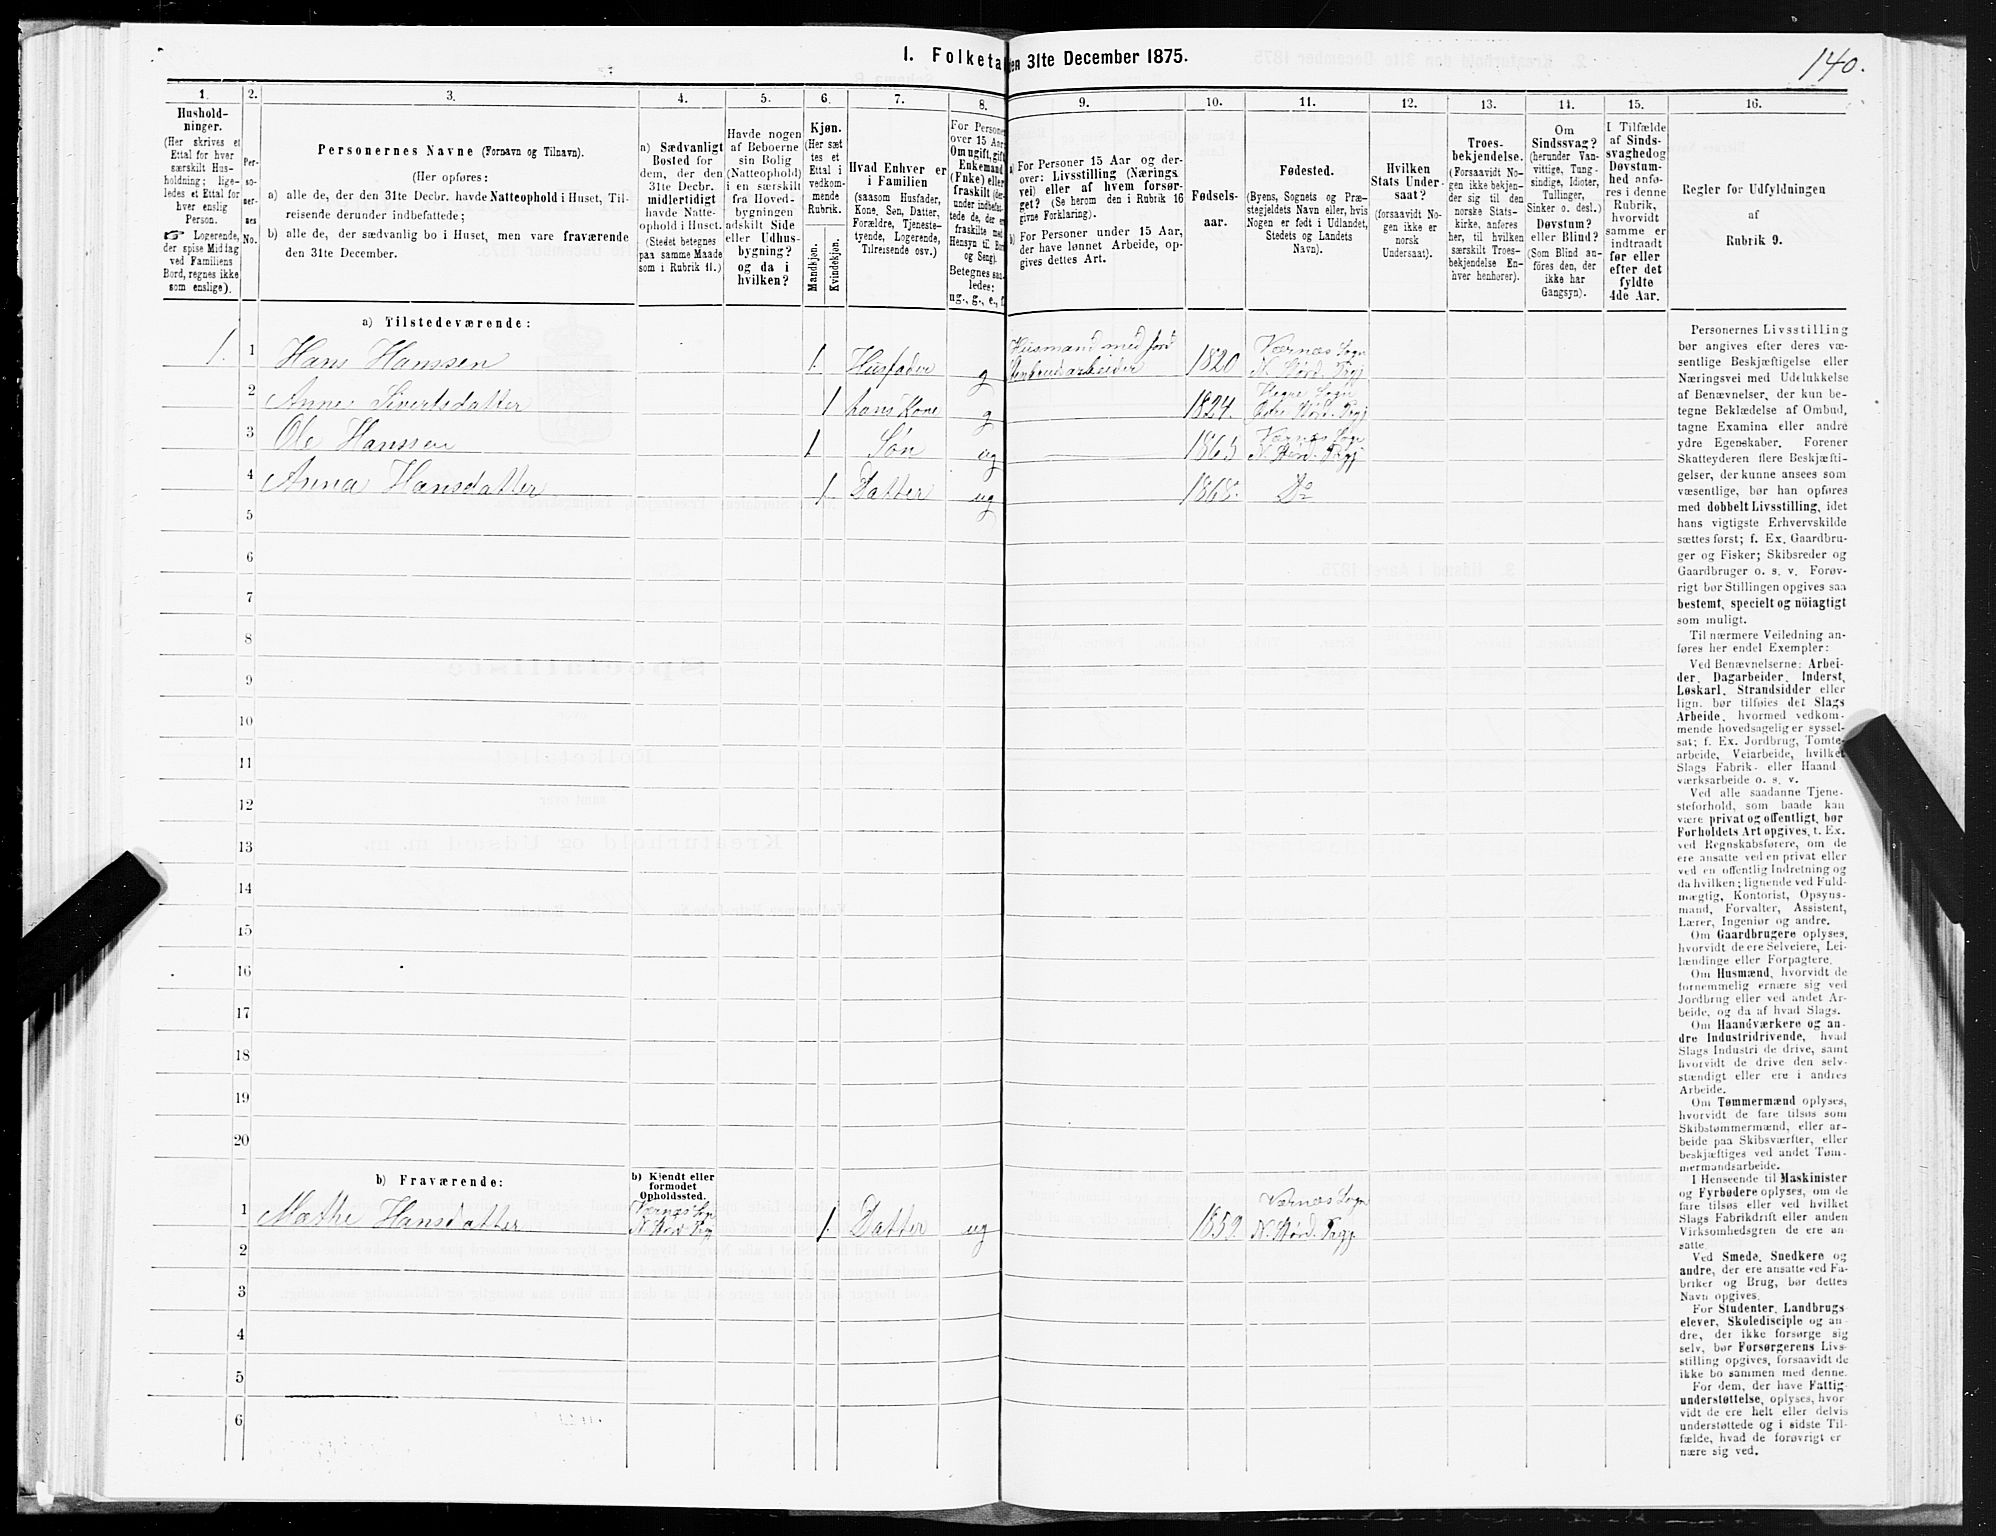 I. Folketa
en 31te December 1875.
140.
1.
2.
3.
4.
5.
6.
7.
8.
9.
10.
11.
12.
13.
14.
15.
16.
Hushold-
ninger.
(Her skrives et
Ettal for hver
særskilt Hus-
holdning; lige-
ledes et Ettal for
hver enslig
Person.
☞ Logerende,
der spise Middag
ved Familiens
Bord, regnes ikke
som enslige).
Per-
so-
ner-
nes
No.
Personernes Navne (Fornavn og Tilnavn).
(Her opføres:
a) alle de, der den 31te Decbr. havde Natteophold i Huset, Til-
reisende derunder indbefattede;
b) alle de, der sædvanlig bo i Huset, men vare fraværende
den 31te December.
a) Sædvanligt
Bosted for
dem, der den
31te Decbr.
midlertidigt
havde Natte-
ophold i Huset.
(Stedet betegnes
paa samme Maade
som i Rubrik 11.)
Havde nogen
af Beboerne
sin Bolig
(Natteophold)
i en særskilt
fra Hoved-
bygningen
adskilt Side
eller Udhus-
bygning?
og da i
hvilken?
Kjøn.
(Her sæt
tes et
Ettal i
vedkom-
mende
Rubrik.
Mandkjøn.
Kvindekjøn.
Hvad Enhver er
i Familien
(saasom Husfader,
Kone, Søn, Datter,
Forældre, Tjeneste-
tyende, Logerende,
Tilreisende osv.)
For Persone
over 15 Aar
Om ugift, gift
Enkemand
(Enke) eller
fraskilt (der-
under indbefat-
tede de, der er
fraskilte med
Hensyn til Bor
og Seng).
Betegnes saa-
ledes:
ug., g., e., f.
a) For Personer 15 Aar og der-
over: Livsstilling (Nærings
vei) eller af hvem forsør-
get? (Se herom den i Rubrik 16
givne Forklaring).
b) For Personer under 15 Aar,
der have lønnet Arbeide, op-
gives dettes Art.
Fødsels-
aar.
Fødested.
(Byens, Sognets og Præ-
stegjeldets Navn eller, hvis
Nogen er født i Udlandet,
Stedets og Landets
Navn).
Hvilken
Stats Under-
saat?
(forsaavidt No-
gen ikke er
norsk
Undersaat).
Troes-
bekjendelse.
(Forsaavidt No-
gen ikke bekjen-
der sig til den
norske Stats-
kirke, anføres
her, til hvilken
særskilt Troes-
bekjendelse En-
hver henhører).
Om
Sindssvag?
(herunder Van-
vittige, Tung-
sindige, Idioter,
Tullinger,
Sinker o. desl.)
Døvstum?
eller Blind?
(Som Blind an-
føres den, der
ikke har
Gangsyn).
I Tilfælde
af Sinds-
svaghed og
Døvstum-
hed anfø-
res i denne
Rubrik,
hvorvidt
samme er
indtraadt
før eller
efter det
fyldte
4de Aar.
Regler for Udfyldningen
af
Rubrik 9.
a) Tilstedeværende:
1. 1 Hans Hanssen 1. Husfader g Husmand med Jord 1820 Værnes Sogn
Stenbrudarbeider N. Størd. Prgj
2 Anne Sivertsdatter 1 hans Kone g 1824. Hegre Sogn
Øvre Størd. Prgj
3 Ole Hanssen 1 Søn ug 1863 Værnes Sogn
N. Størd. Prgj
4 Anna Hansdatter 1. Datter ug 1868. Do
5
6
7
8
9
10
11
12
13
14
15
16
17
18
19
20
b) Fraværende:
b) Kjendt eller
formodet
Opholdssted.
1 Mathe Hansdatter Værnes Sogn 1. Datter ug 1859. Værnes Sogn
N. Størd. Prgj N. Størd. Prgj.
2
3
4
5
6
Personernes Livsstilling
bør angives efter deres væ-
sentlige Beskjæftigelse eller
Næringsvei med Udelukkelse
af Benævnelser, der kun be-
tegne Beklædelse af Ombud,
tagne Examina eller andre
ydre Egenskaber. Forener
Skatteyderen flere Beskjæfti-
gelser, der kunne ansees som
væsentlige, bør han opføres
med dobbelt Livsstilling, idet
hans vigtigste Erhvervskilde
sættes først; f. Ex. Gaardbru-
ger og Fisker; Skibsreder og
Gaardbruger o. s. v. Forøv-
rigt bør Stillingen opgives saa
bestemt, specielt og nöiagtigt
som muligt.
Til nærmere Veiledning an-
føres her endel Exempler:
Ved Benævnelserne: Arbei-
der, Dagarbeider, Inderst,
Løskarl, Strandsidder eller
lign. bør tilføies det Slags
Arbeide, hvormed vedkom-
mende hovedsagelig er syssel-
sat; f. Ex. Jordbrug, Tomte-
arbeide, Veiarbeide, hvilket
Slags Fabrik- eller Haand
værksarbeide o. s. v.
Ved alle saadanne Tjene-
steforhold, som baade kan
være privat og offentligt, bør
Forholdets Art opgives, t. Ex.
ved Regnskabsførere, om de
ere ansatte ved en privat eller
ved en offentlig Indretning og
da hvilken; lignende ved Fuld-
mægtig, Kontorist, Opsyns-
mand, Forvalter, Assistent,
Lærer, Ingeniør og andre.
Om Gaardbrugere oplyses,
hvorvidt de ere Selveiere, Lei-
lændinge eller Forpagtere.
Om Husmænd, hvorvidt de
fornemmelig ernære sig ved
Jordbrug eller ved andet Ar-
beide, og da af hvad Slags.
Om Haandværkere og an-
dre Industridrivende, hvad
Slags Industri de drive, samt
hvorvidt de drive den selv-
stændigt eller ere i andres
Arbeide.
Om Tømmermænd oplyses,
hvorvidt de fare tilsøs som
Skibstømmermænd, eller ar-
beide paa Skibsværfter, eller
beskjæftiges ved andet Tøm-
mermandsarbeide.
I Henseende til Maskinister
og Fyrbødere oplyses, om de
fare tilsøs eller ved hvilket
Slags Fabrikdrift eller anden
Virksomhedsgren de ere an-
satte.
Ved Smede, Snedkere og
andre, der ere ansatte ved Fa-
briker og Brug, bør dettes
Navn opgives.
For Studenter, Landbrugs
elever, Skoledisciple og an-
dre, der ikke forsørge sig
selv, bør Forsørgerens Livs-
stilling opgives, forsaavidt de
ikke bo sammen med denne.
For dem, der have Fattig-
understøttelse, oplyses, hvor-
vidt de ere helt eller delvis
understøttede og i sidste Til-
fælde, hvad de forøvrigt er
nære sig ved.